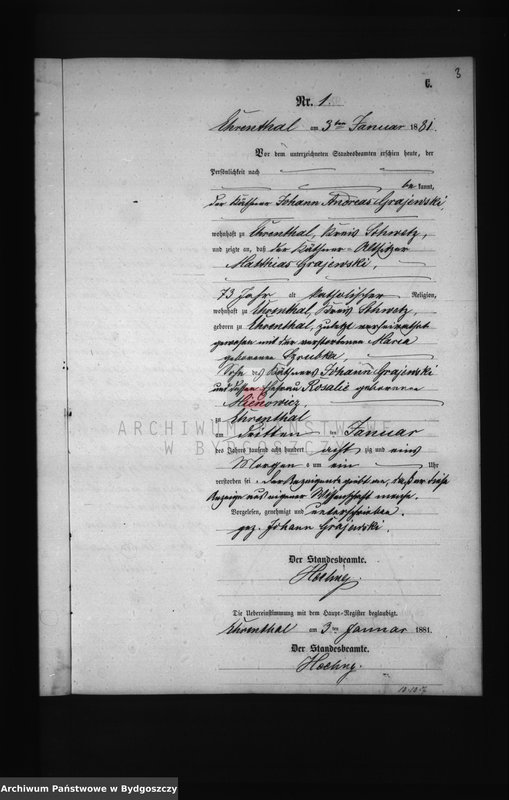 3
C.
Nr. 1.
Ehrenthal am 3ten Januar 1881.
Vor dem unterzeichneten Standesbeamten erschien heute, der
Persönlichkeit nach
be kannt,
der Käthner Johann Andreas Grajewski
wohnhaft zu Ehrenthal, Kreis Schwetz,
und zeigte an, daß der Käthner-Altsitzer
Matthias Grajewski,
73 Jahr alt katholischer Religion,
wohnhaft zu Ehrenthal, Kreis Schwetz,
geboren zu Ehrenthal, zuletzt verheirathet
gewesen mit der verstorbenen Maria
geborenen Grubka,
Sohn des Käthners Johann Grajewski
und dessen Ehefrau Rosalie geborenen
zu Ehrenthal
am dritten Januar
des Jahres tausend acht hundert acht zig und eins
Morgens um ein Uhr
verstorben sei, der Anzeigende gibt an, daß er diese
Anzeige aus eigener Wissenschaft mache.
Vorgelesen, genehmigt und unterschrieben.
gez. Johann Grajewski.
Der Standesbeamte.
Die Uebereinstimmung mit dem Haupt-Register beglaubigt.
Ehrenthal am 3ten Januar 1881.
Der Standesbeamte.
ARCHIWUM PAŃSTWOWE
W BYDGOSZCZY
Archiwum Państwowe w Bydgoszczy